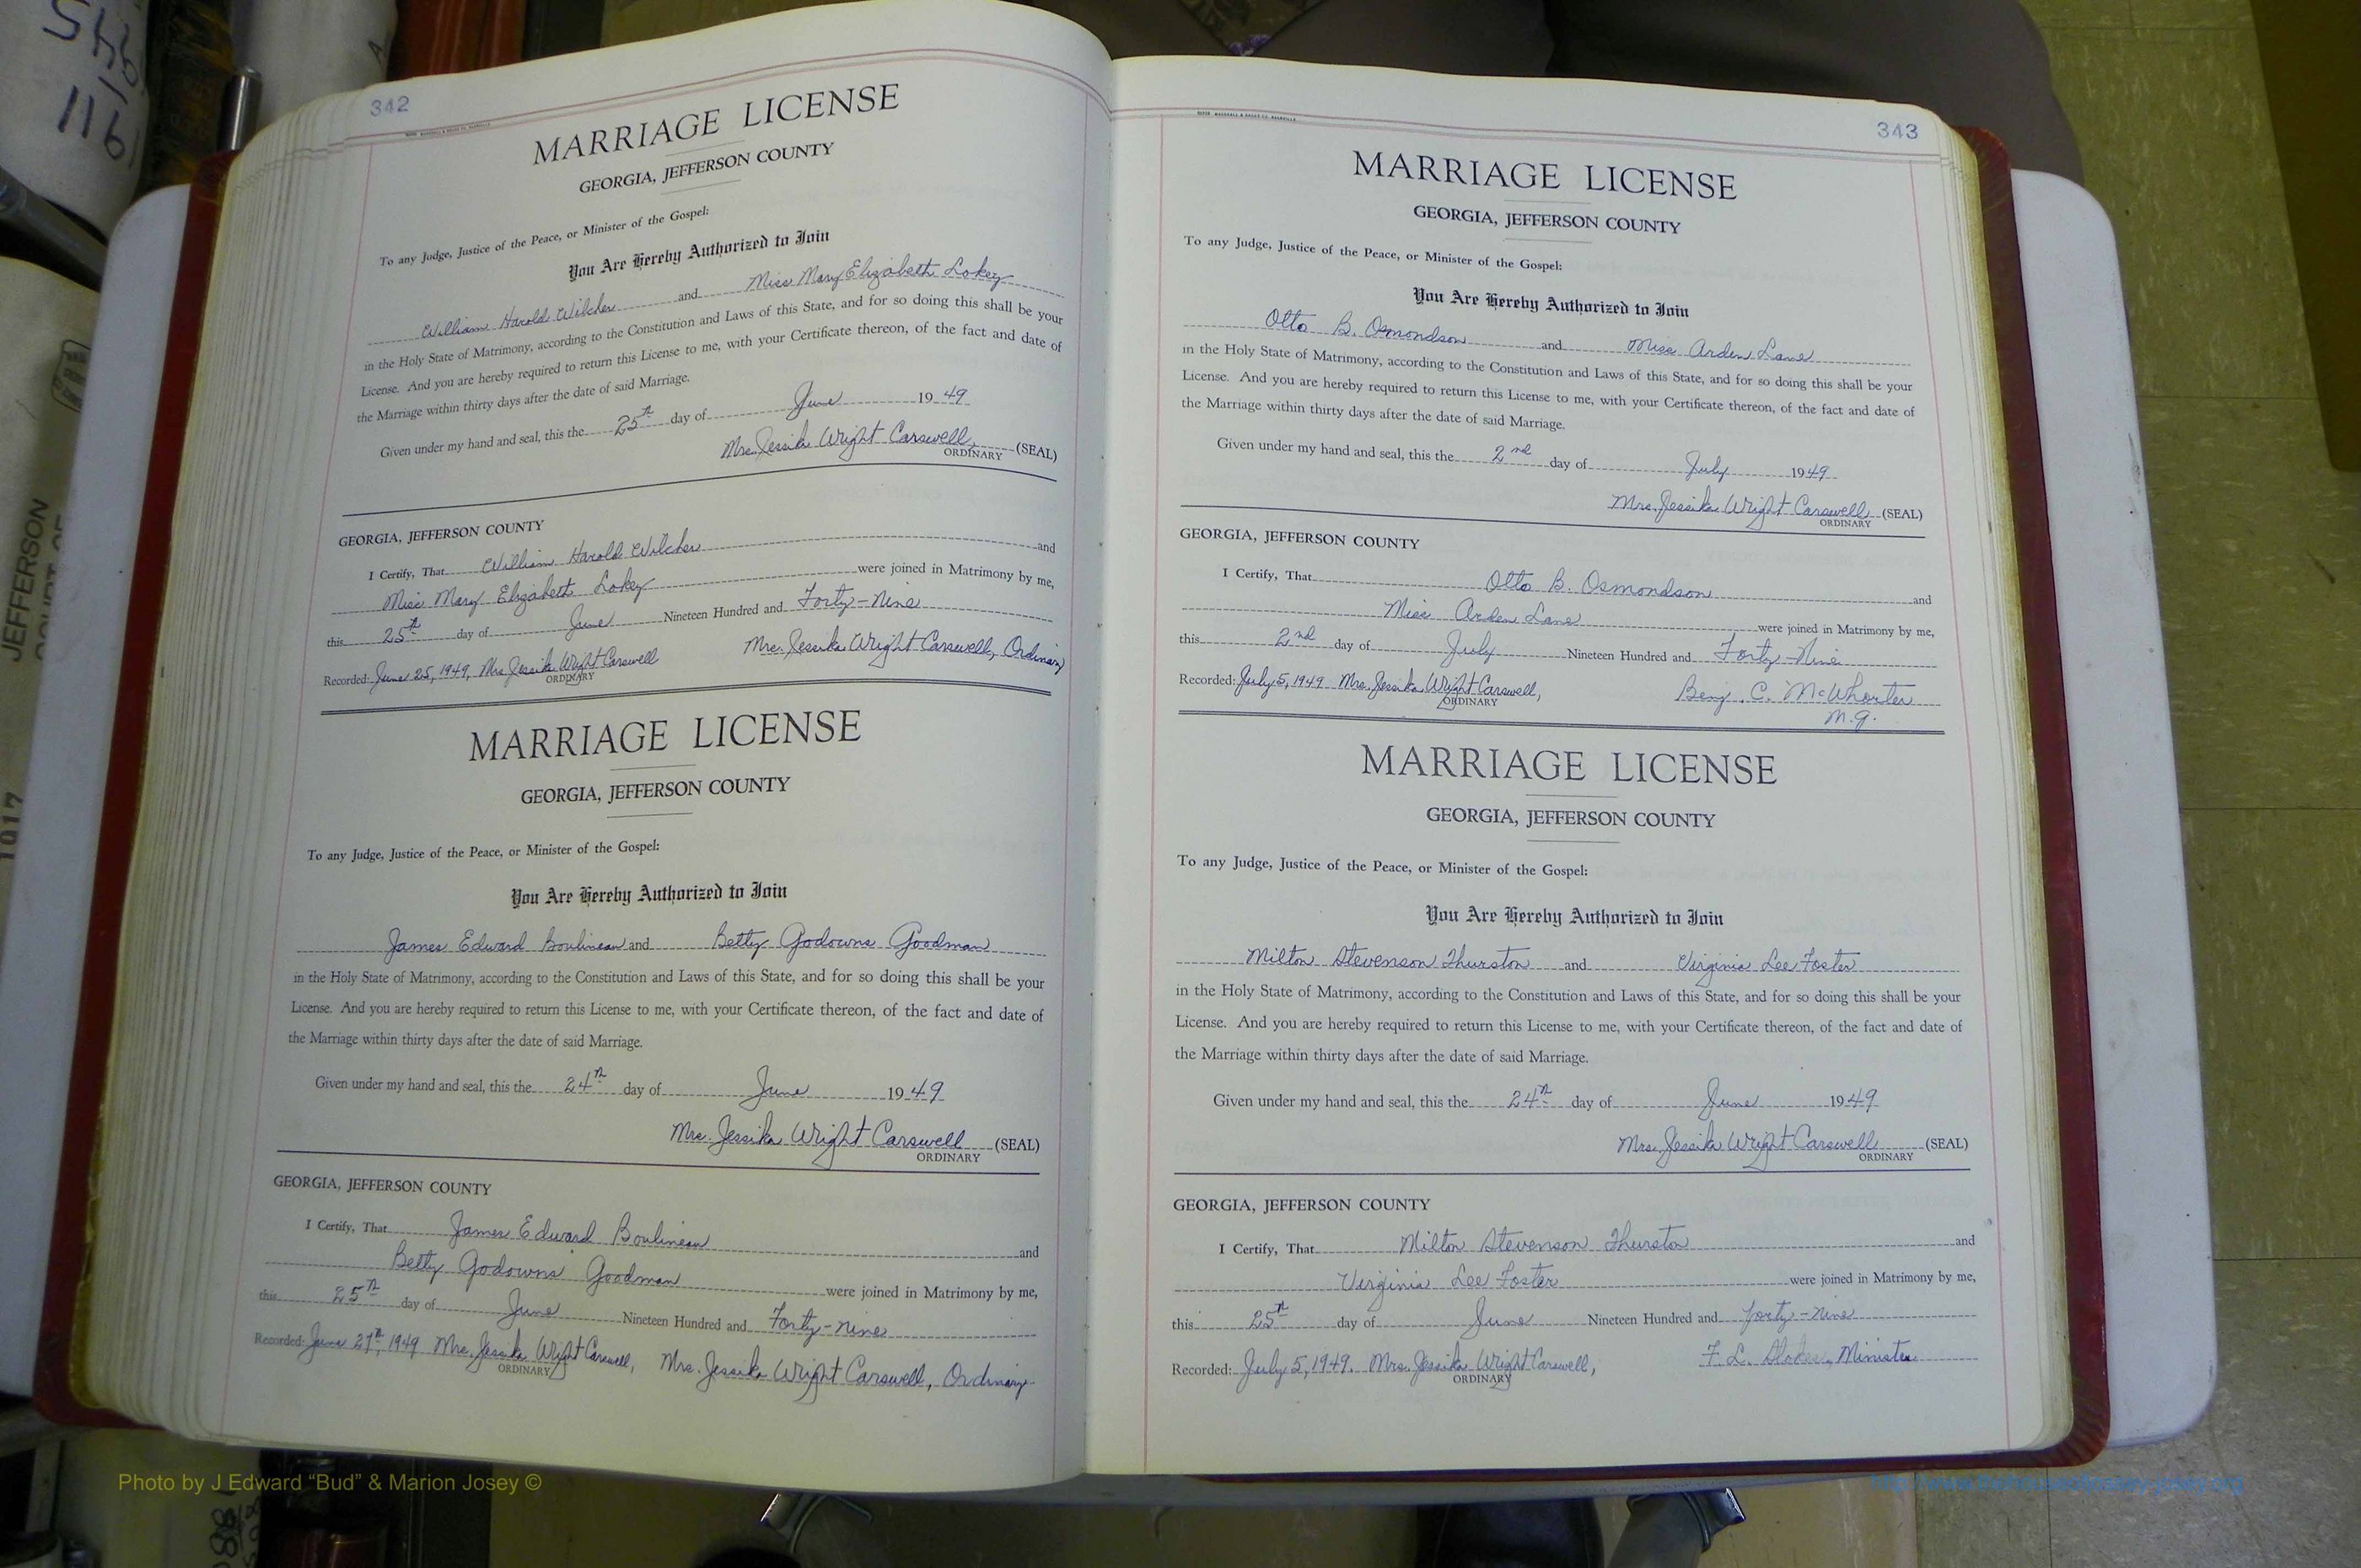 342
MARRIAGE LICENSE
GEORGIA, JEFFERSON COUNTY
To any Judge, Justice of the Peace, or Minister of the Gospel:
You Are Hereby Authorized to Join
William Harold Wilcher and Miss Mary Elizabeth Lokey
in the Holy State of Matrimony, according to the Constitution and Laws of this State, and for so doing this shall be your
License. And you are hereby required to return this License to me, with your Certificate thereon, of the fact and date of
the Marriage within thirty days after the date of said Marriage.
Given under my hand and seal, this the 25th day of June 1949
Mrs. Jessika Wright Carswell, (SEAL)
ORDINARY
GEORGIA, JEFFERSON COUNTY
I Certify, That William Harold Wilcher and
Miss Mary Elizabeth Lokey were joined in Matrimony by me,
this 25th day of June Nineteen Hundred and Forty-nine
Recorded: June 25, 1949, Mrs Jessika Wright Carswell Mrs. Jessika Wright Carswell, Ordinary
ORDINARY
MARRIAGE LICENSE
GEORGIA, JEFFERSON COUNTY
To any Judge, Justice of the Peace, or Minister of the Gospel:
You Are Hereby Authorized to Join
James Edward Boulineau and Betty Godowns Goodman
in the Holy State of Matrimony, according to the Constitution and Laws of this State, and for so doing this shall be your
License. And you are hereby required to return this License to me, with your Certificate thereon, of the fact and date of
the Marriage within thirty days after the date of said Marriage.
Given under my hand and seal, this the 24th day of June 1949
Mrs. Jessika Wright Carswell (SEAL)
ORDINARY
GEORGIA, JEFFERSON COUNTY
I Certify, That James Edward Boulineau and
Betty Godowns Goodman were joined in Matrimony by me,
this 25th day of June Nineteen Hundred and Forty-nine
Recorded: June 27th, 1949 Mrs. Jessika Wright Carswell, Mrs. Jessika Wright Carswell, Ordinary
ORDINARY
343
MARRIAGE LICENSE
GEORGIA, JEFFERSON COUNTY
To any Judge, Justice of the Peace, or Minister of the Gospel:
You Are Hereby Authorized to Join
Otto B. Osmondson and Miss Arden Lane
in the Holy State of Matrimony, according to the Constitution and Laws of this State, and for so doing this shall be your
License. And you are hereby required to return this License to me, with your Certificate thereon, of the fact and date of
the Marriage within thirty days after the date of said Marriage.
Given under my hand and seal, this the 2nd day of July 1949
Mrs. Jessika Wright Carswell (SEAL)
ORDINARY
GEORGIA, JEFFERSON COUNTY
I Certify, That Otto B. Osmondson and
Miss Arden Lane were joined in Matrimony by me,
this 2nd day of July Nineteen Hundred and Forty-Nine
Recorded: July 5, 1949 Mrs. Jessika Wright Carswell, Benj. C. McWhorter
ORDINARY M.G.
MARRIAGE LICENSE
GEORGIA, JEFFERSON COUNTY
To any Judge, Justice of the Peace, or Minister of the Gospel:
You Are Hereby Authorized to Join
Milton Stevenson Thurston and Virginia Lee Foster
in the Holy State of Matrimony, according to the Constitution and Laws of this State, and for so doing this shall be your
License. And you are hereby required to return this License to me, with your Certificate thereon, of the fact and date of
the Marriage within thirty days after the date of said Marriage.
Given under my hand and seal, this the 24th day of June 1949
Mrs. Jessika Wright Carswell (SEAL)
ORDINARY
GEORGIA, JEFFERSON COUNTY
I Certify, That Milton Stevenson Thurston and
Virginia Lee Foster were joined in Matrimony by me,
this 25th day of June Nineteen Hundred and forty-nine
Recorded: July 5, 1949. Mrs. Jessika Wright Carswell, F. L. Minister
ORDINARY
116
JEFFERSON
1917
Photo by J Edward “Bud” & Marion Josey ©